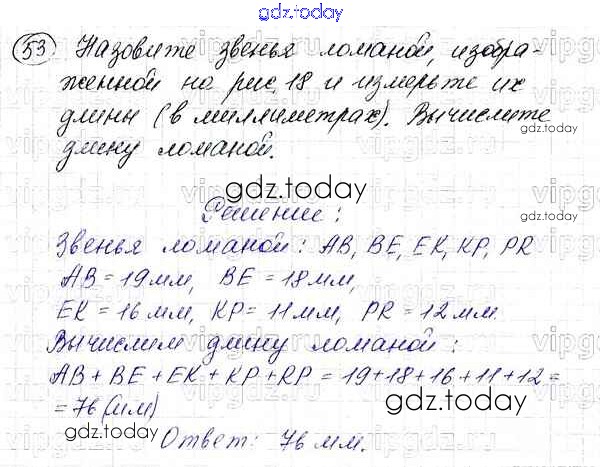 gdz.today
53 Назовите звенья ломаной, изобра-
женной на рис. 18 и измерьте их
длины (в миллиметрах). Вычислите
gdz.today
длину ломаной.
gdz.today
Решение:
Звенья ломаной: AB, BE, EK, KP, PR
AB = 19 мм, BE = 18 мм,
EK = 16 мм, KP = 11 мм, PR = 12 мм.
Вычислим длину ломаной:
AB + BE + EK + KP + RP = 19+18+16+11+12 =
= 76 (мм)
gdz.today
gdz.today
Ответ: 76 мм.